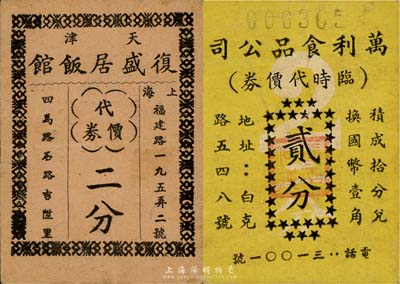 天津
復盛居飯館
上海
福建路一九五弄二號
代價券
二分
四馬路石路吉陞里
000305
萬利食品公司
(臨時代價券)
積成拾分兌
換國幣壹角
貳分
地址：白克
路五四八號
電話：三一〇〇一號
上海陽明拍賣